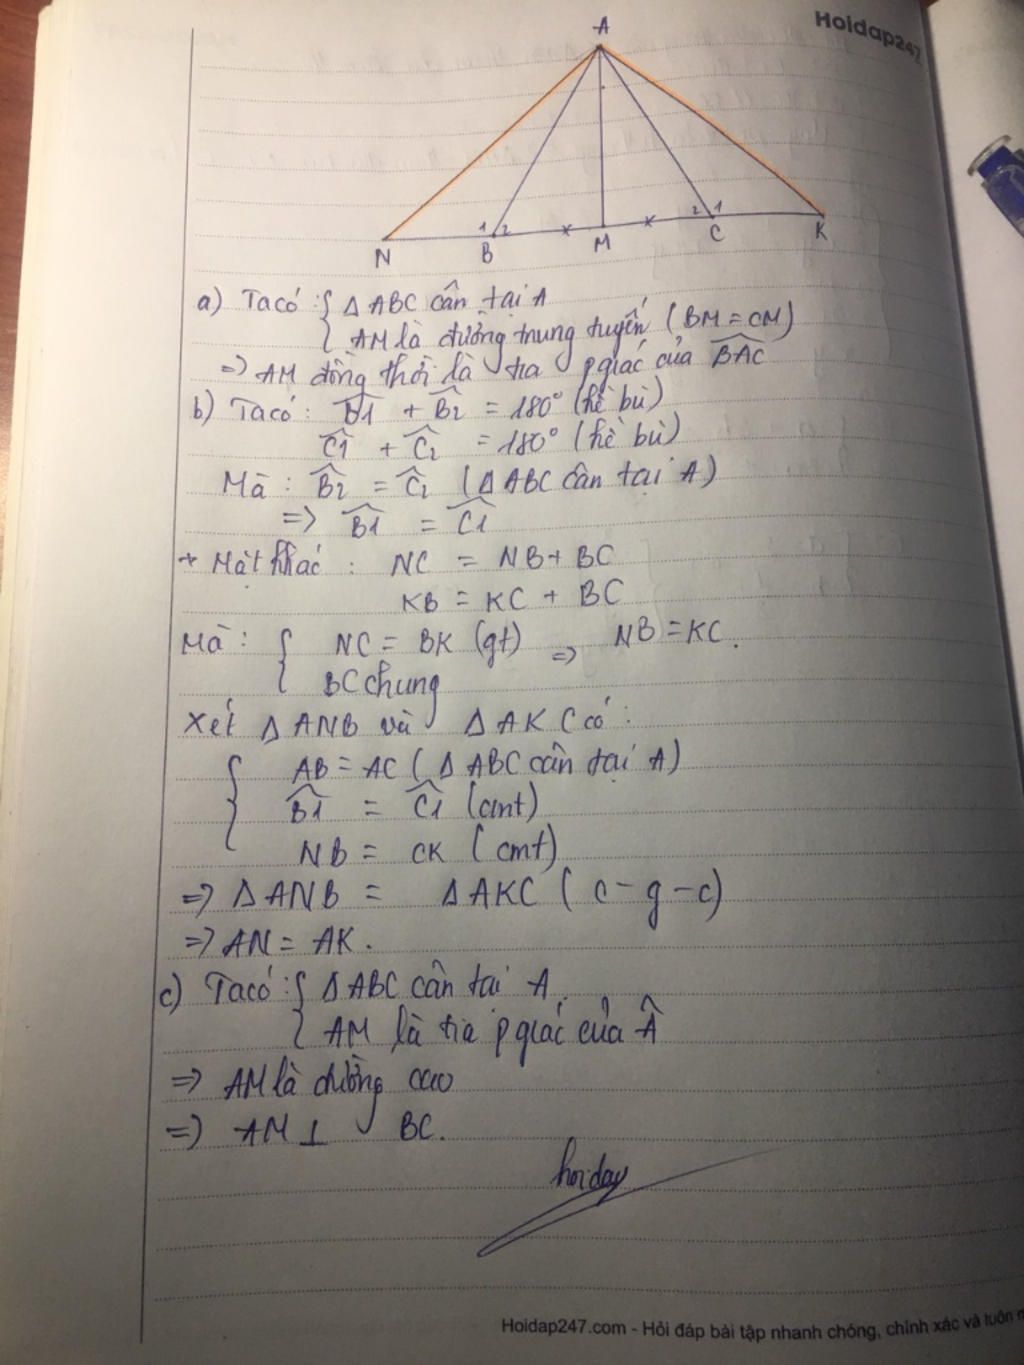 Hoidap247
A
1 2 2 1
N B M C K
a) Ta có : { Δ ABC cân tại A
{ AM là đường trung tuyến (BM = CM)
=> AM đồng thời là tia p giác của BAC
b) Ta có : B1 + B2 = 180° (kề bù)
C1 + C2 = 180° (kề bù)
Mà : B2 = C2 (Δ ABC cân tại A)
=> B1 = C1
+ Mặt khác : NC = NB + BC
KB = KC + BC
Mà : { NC = BK (gt) => NB = KC.
{ BC chung
Xét Δ ANB và Δ AKC có :
{ AB = AC (Δ ABC cân tại A)
B1 = C1 (cmt)
NB = CK (cmt)
=> Δ ANB = Δ AKC (c - g - c)
=> AN = AK.
c) Ta có : { Δ ABC cân tại A.
{ AM là tia p giác của Â
=> AM là đường cao
=> AM ⊥ BC.
Hoidap247.com - Hỏi đáp bài tập nhanh chóng, chính xác và luôn